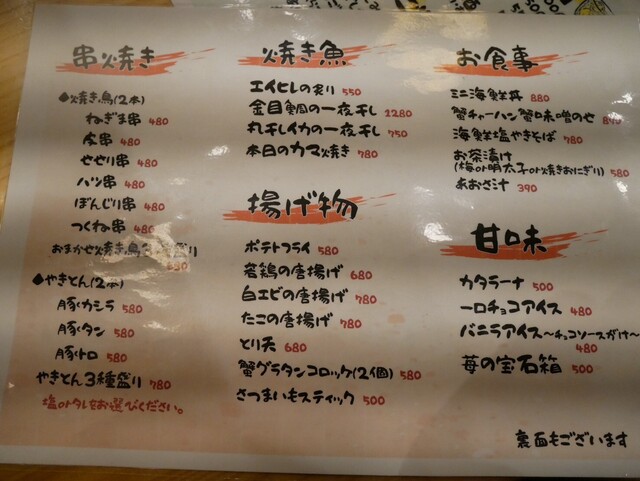 串焼き
◆焼き鳥(2本)
ねぎま串 480
皮串 480
せせり串 480
ハツ串 480
ぼんじり串 480
つくね串 480
おまかせ焼き鳥 盛り
◆やきとん(2本)
豚カシラ 580
豚タン 580
豚トロ 580
やきとん3種盛り 780
塩orタレをお選びください。
焼き魚
エイヒレの炙り 550
金目鯛の一夜干し 1280
丸干しイカの一夜干し 750
本日のカマ焼き 780
揚げ物
ポテトフライ 580
若鶏の唐揚げ 680
白エビの唐揚げ 780
たこの唐揚げ 780
とり天 680
蟹グラタンコロッケ(2個) 580
さつまいもスティック 500
お食事
ミニ海鮮丼 880
蟹チャーハン蟹味噌のせ 890
海鮮塩やきそば 780
お茶漬け
(梅or明太子or焼きおにぎり) 580
あおさ汁 390
甘味
カタラーナ 500
一口チョコアイス 480
バニラアイス〜チョコソースがけ〜
480
苺の宝石箱 500
裏面もございます